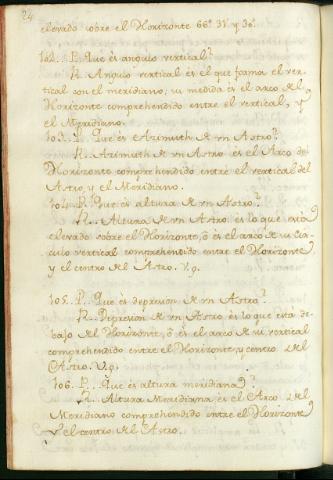 24
elevado sobre el Horizonte 66° 31' y 30".
102. P. Que és angulo vertical?
R. Angulo vertical és el que forma el ver-
tical con el meridiano; su medida es el arco del
Horizonte comprehendido entre el vertical, y
el Meridiano.
103. P. Que és Azimuth de vn Astro?
R. Azimuth de vn Astro és el Arco del
Horizonte comprehendido entre el vertical del
Astro, y el Meridiano.
104. P. Que és altura de vn Astro?
R. Altura de vn Astro és lo que está
elevado sobre el Horizonte, ó és el arco de su Cir-
culo vertical comprehendido entre el Horizonte
y el centro del Astro. V.g.
105. P. Que és depresion de vn Astro?
R. Depresion de vn Astro és lo que está de-
bajo del Horizonte, ó és el arco de su vertical
comprehendido entre el Horizonte, y centro del
Astro. V.g.
106. P. Que és altura meridiana?
R. Altura Meridiana, és el Arco del
Meridiano comprehendido entre el Horizonte
y el centro del Astro.